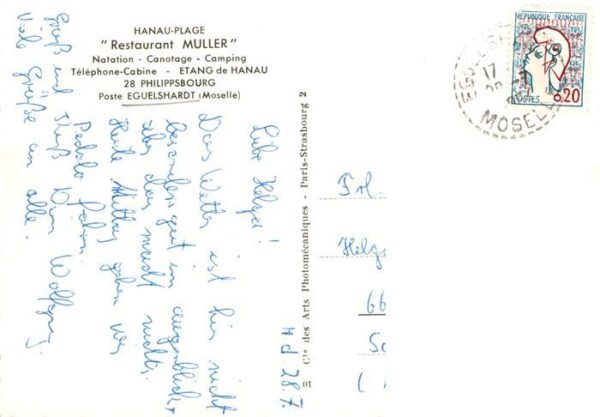 HANAU-PLAGE
"Restaurant MULLER"
Natation - Canotage - Camping
Téléphone-Cabine - ETANG de HANAU
28 PHILIPPSBOURG
Poste EGUELSHARDT (Moselle)
28.7.
Liebe Helga!
Das Wetter ist hier nicht
besonders gut im Augenblick,
aber das macht nichts.
Heute Mittag gehen wir
Pedalo fahren.
Gruß und Kuß Dein Wolfgang
Viele Grüße an alle.
01 Cie des Arts Photomécaniques - Paris-Strasbourg 2
REPUBLIQUE FRANÇAISE
POSTES 0,20
17
MOSELLE
Frl.
Helg
66